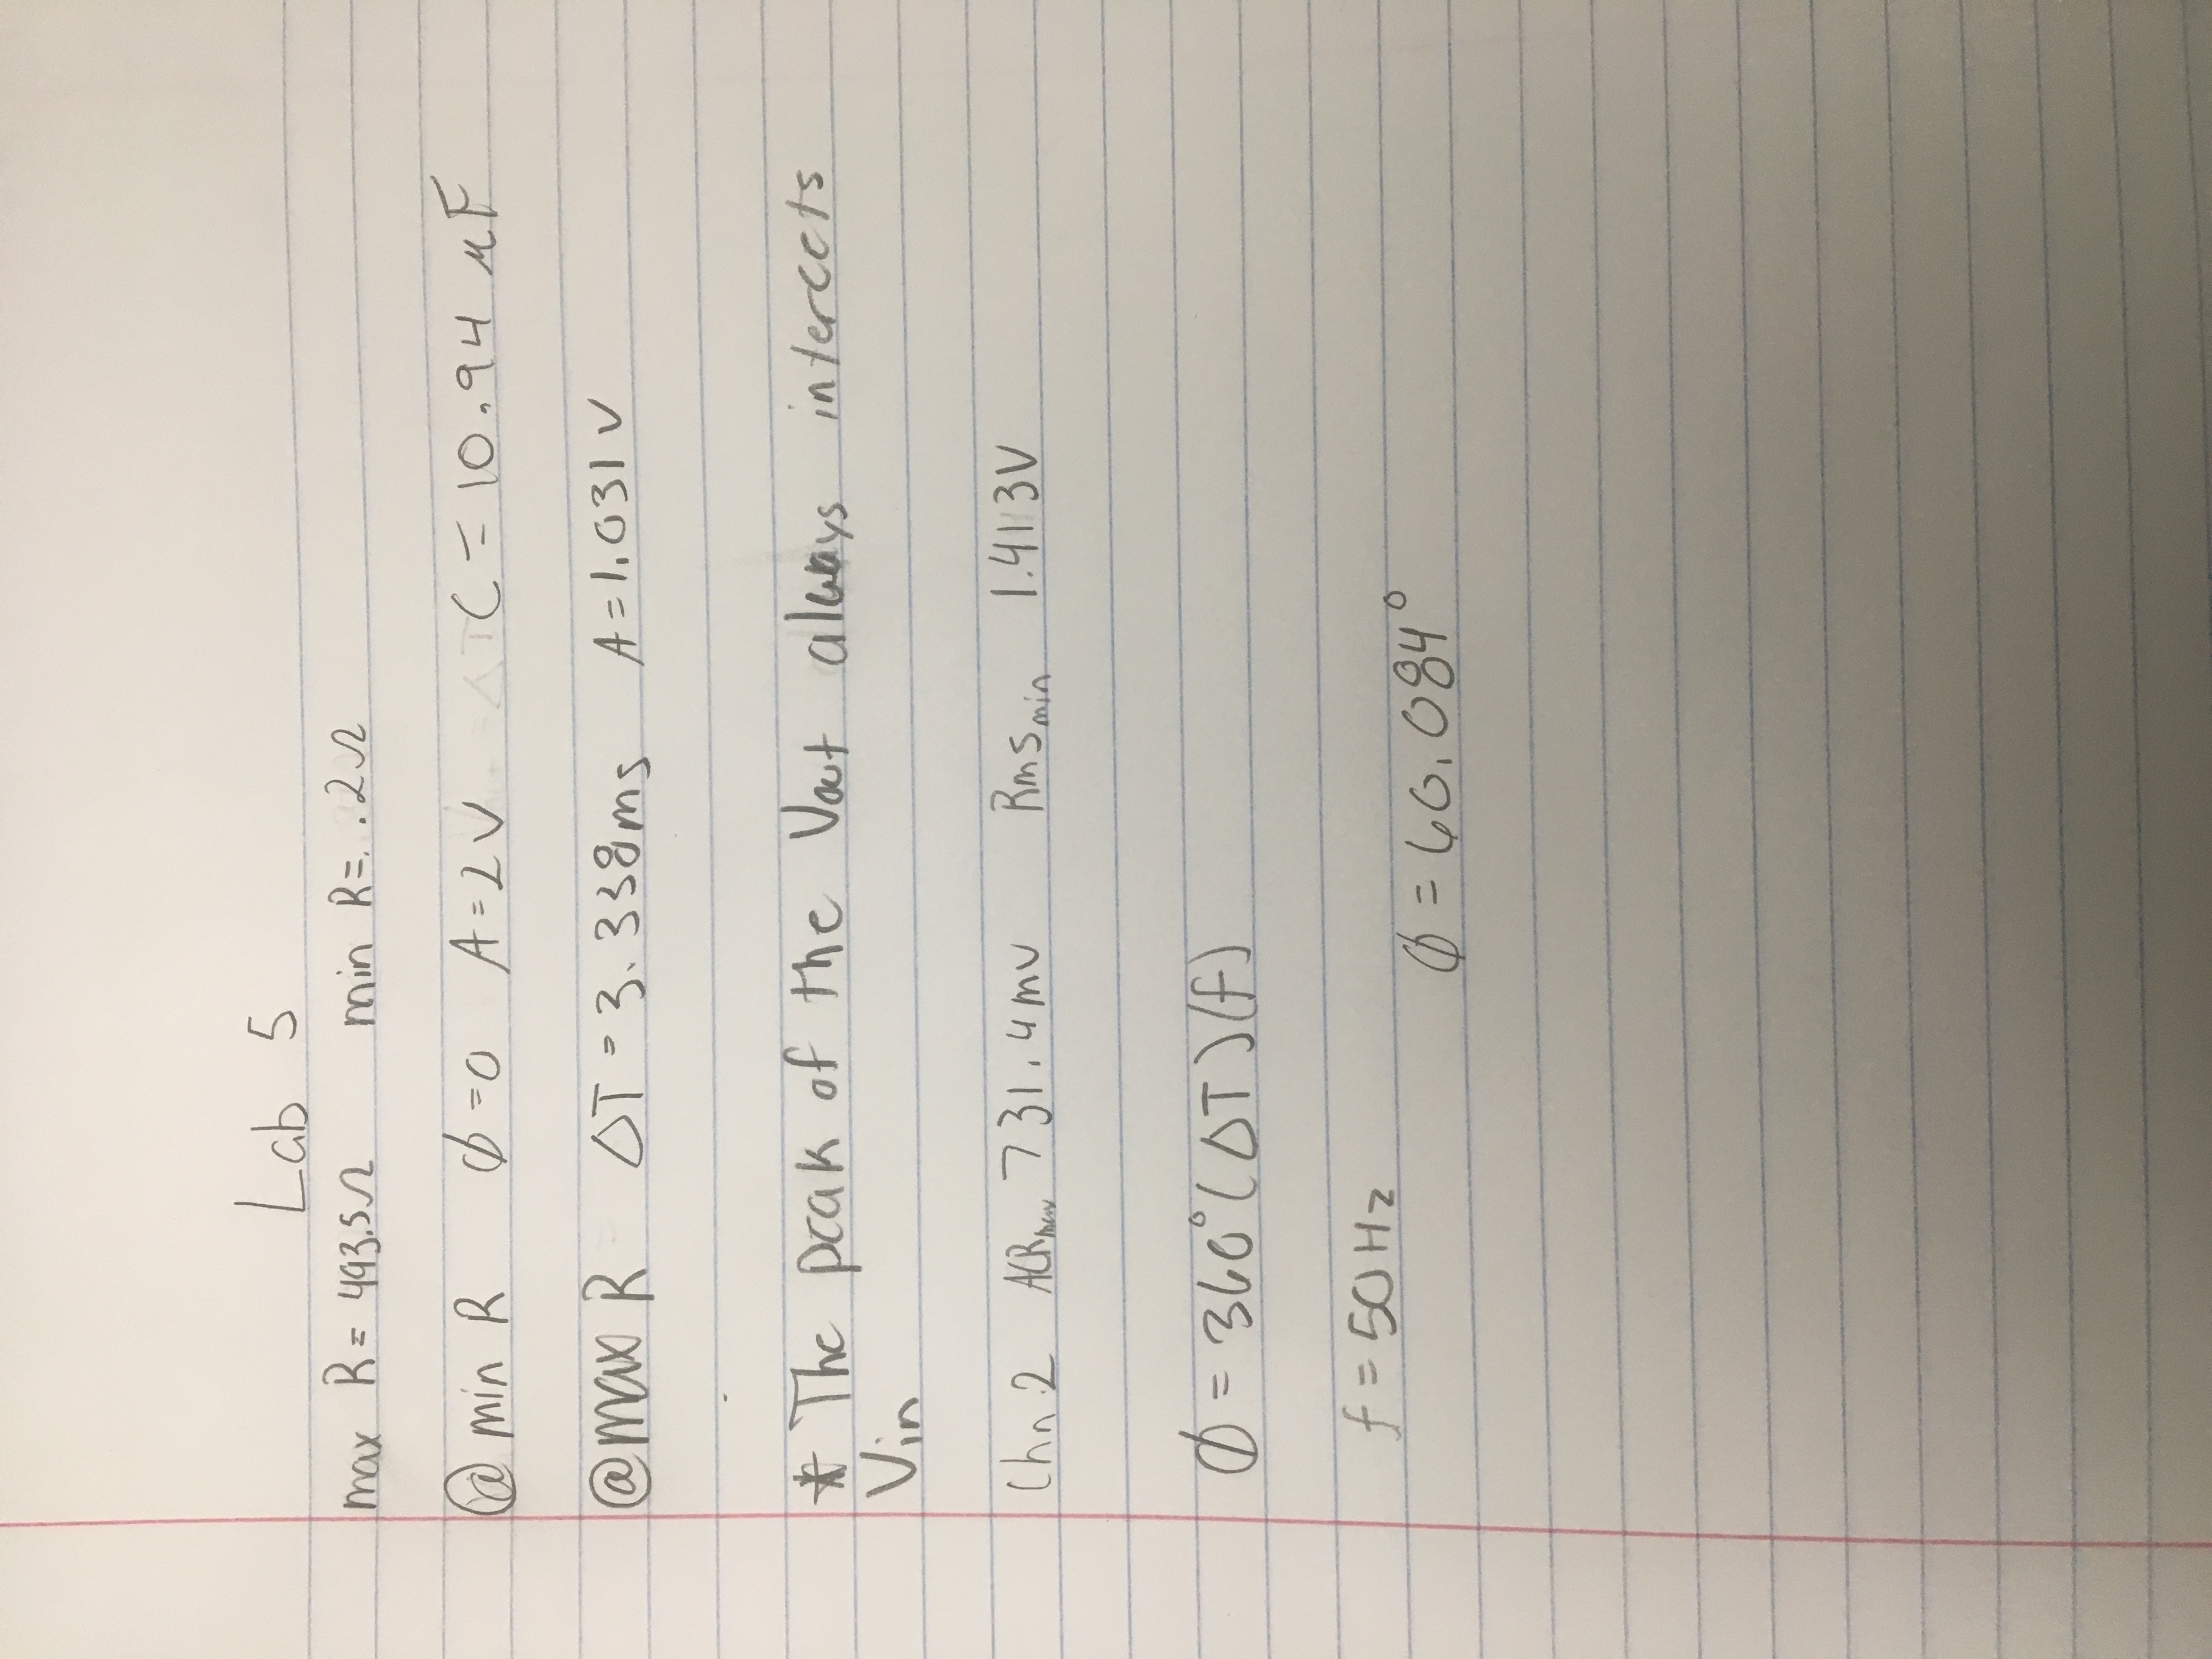 Lab 5
max R = 493.5Ω min R = .2Ω
@ min R ϕ = 0 A = 2V C = 10.94 μF
@max R ΔT = 3.338ms A = 1.031 V
* The peak of the Vout always intercets
Vin
Chn 2 731.4mv Rms min 1.413V
ϕ = 360°(ΔT)(f)
f = 50Hz
ϕ = 60.084°